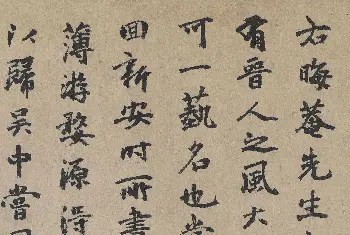 右晦菴先生
有晋人之風大
可一藝名也当
回新安时所書
薄游婺源得
以歸吴中嘗